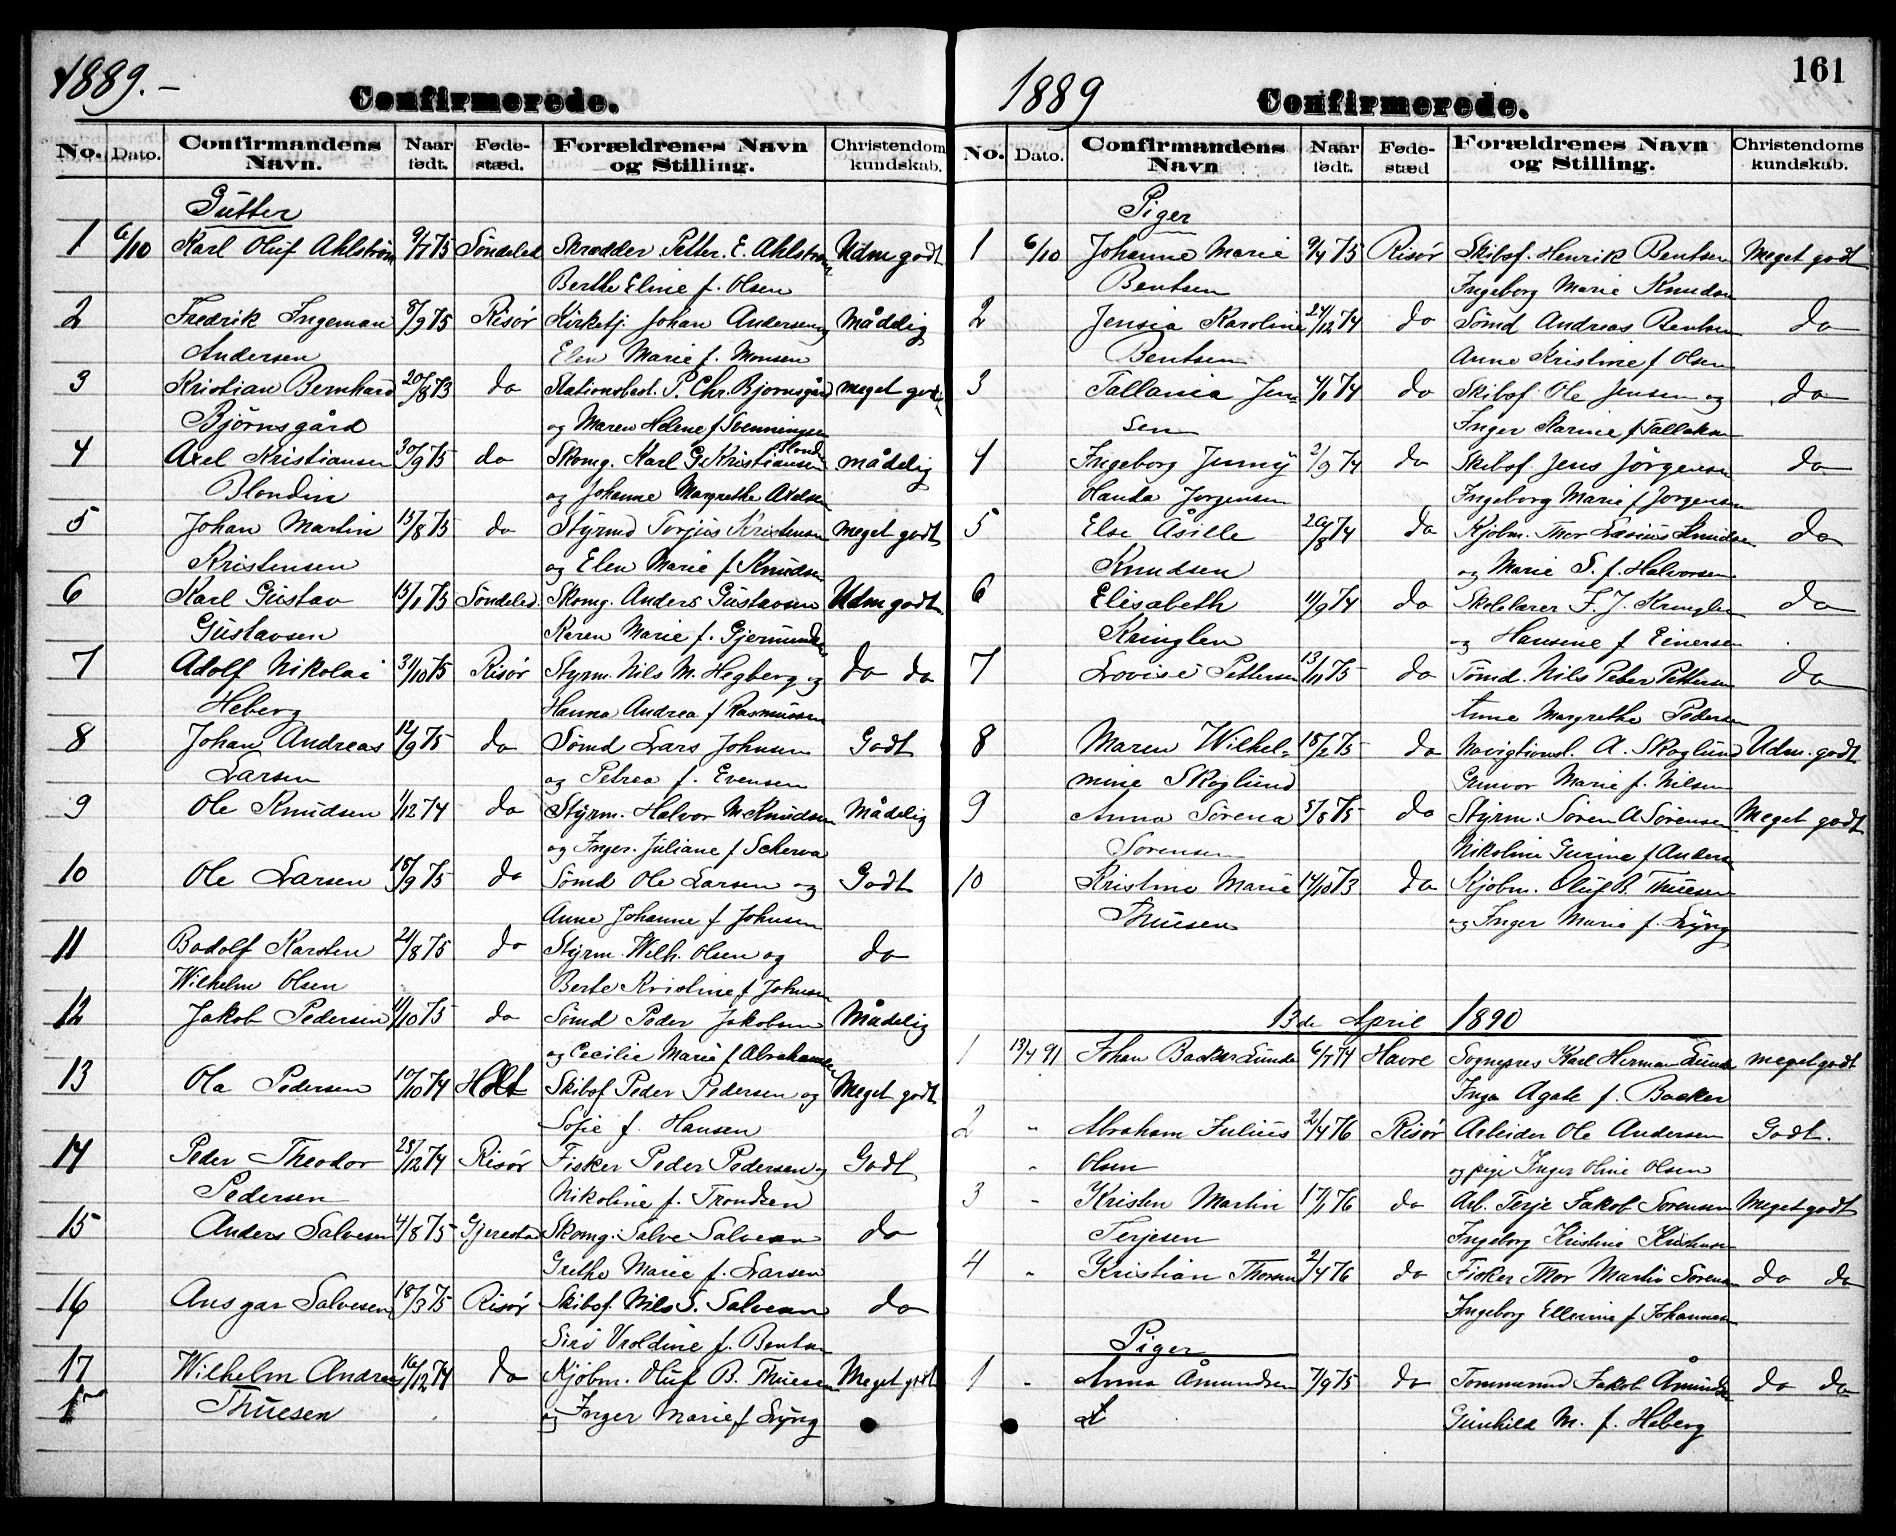 1889.-
Confirmerede.
No. Dato. Confirmandens Navn. Naar født. Fødestæd. Forældrenes Navn og Stilling. Christendomskundskab.
Gutter
1 6/10 Karl Oluf Ahlström 9/7 75 Söndeled Skrædder Petter. E. Ahlström Udm godt
Berthe Eline f. Olsen
2 Fredrik Ingeman 8/9 75 Risør Kirketj. Johan Andersen og Mådelig
Andersen Elen Marie f. Monsen
3 Kristian Bernhard 20/8 73 do Stationsbest. P. Chr. Bjornsgård meget godt
Bjørnsgård og Maren Helene f Svenningsen
4 Axel Kristiansen 30/9 75 do Skomg. Karl G. Kristiansen Blondin mådelig
Blondin og Johanne Margrethe Axelsen
5 Johan Martin 15/8 75 do Styrmd Torjus Kristensen meget godt
Kristensen og Elen Marie f Knudsen
6 Karl Gustav 15/1 75 Söndeled Skomg. Anders Gustavsen Udm godt
Gustavsen Karen Marie f. Gjermundsen
7 Adolf Nikolai 31/10 75 Risør Styrm. Nils M. Hegberg og do do
Heberg Hanna Andrea f Rasmussen
8 Johan Andreas 12/9 75 do Sömd Lars Johnsen Godt
Larsen og Petrea f. Evensen
9 Ole Knudsen 1/12 74 do Styrm. Halvor M Knudsen Mådelig
og Inger. Juliane f Scherva
10 Ole Larsen 18/9 75 do Sömd Ole Larsen og Godt
Anne Johanne f Johnsen
11 Bodolf Karsten 21/8 75 do Styrm. Wilh. Olsen og do
Wilhelm Olsen Berte Kristine f Johnsen
12 Jakob Pedersen 11/10 75 do Sömd Peder Jakobsen Mådelig
og Cecilie Marie f Abrahamsen
13 Ola Pedersen 10/10 74 Holt Skibsf Peder Pedersen og Meget godt
Sofie f. Hansen
14 Peder Theodor 25/12 74 Risør Fisker Peder Pedersen og Godt
Pedersen Nikoline f. Trondsen
15 Anders Salvesen 4/8 75 Gjerestad Skomg. Salve Salvesen do
Grethe Marie f. Larsen
16 Ansgar Salvesen 18/3 75 Risør Skibsf. Nils S. Salvesen do
Siri Vroldine f. Bentsen
17 Wilhelm Andreas 16/12 74 do Kjöbm. Oluf B. Thuesen Meget godt
Thuesen og Inger Marie f Lyng
161
1889
Confirmerede.
No. Dato. Confirmandens Navn Naar født. Fødestæd Forældrenes Navn og Stilling. Christendoms kundskab.
Piger
1 6/10 Johanne Marie 9/4 75 Risør Skibsf. Henrik Bentsen Meget godt
Bentsen Ingeborg Marie Knudsen
2 Jensia Karoline 24/12 74 do Sömd Andreas Bentsen do
Bentsen Anne Kristine f Olsen
3 Tallania Jen 4/1 74 do Skibsf. Ole Jensen og do
sen Inger Karine f Tallaksen
4 Ingeborg Jenny 2/9 74 do Skibsf. Jens Jörgensen do
Handa Jorgensen Ingeborg Marie f Jorgensen
5 Else Åsille 20/8 74 do Kjöbm. Thor Knudsen do
Knudsen og Marie S. f. Halvorsen
6 Elisabeth 11/9 74 do Skolelærer F. J. Kringlen do
Kringlen og Hansine f Einersen
7 Lovise Pettersen 13/11 75 do Tömd. Nils Peter Pettersen do
Anne Margrethe Pedersen
8 Maren Wilhel= 18/2 75 do Navigtionsl. A. Skoglund Udm. godt
mine Skoglund Gunvor Marie f. Nilsen
9 Anna Sörena 5/8 75 do Styrm. Sören A Sörensen Meget godt
Sorensen Nikoline Gurine f Anders
10 Kristine Marie 14/10 73 do Kjöbm. Oluf B. Thuesen
Thuesen og Inger Marie f. Lyng
13de April 1890
1 13/4 91 Johan Backer Lunde 6/7 74 Havre Sognepres Karl Herman Lunde meget godt
Inga Agate f. Backer
2 - Abraham Julius 2/4 76 Risør Arbeider Ole Andersen Godt.
- Olsen og pige Inger Oline Olsen
3 - Kristen Martin 17/1 76 do Arb. Terje Jakob Sorensen Meget godt
Terjesen Ingeborg Kristine Kristensen
4 - Kristian Thorsen 2/4 76 do Fisker Thor Martin Sorensen do do
Ingeborg Ellerine f Johannesen
Piger
1 - Anna Åmundsen 7/9 75 do Tommermd Jakob Åmundsen do do
Gunhild M. f. Heberg